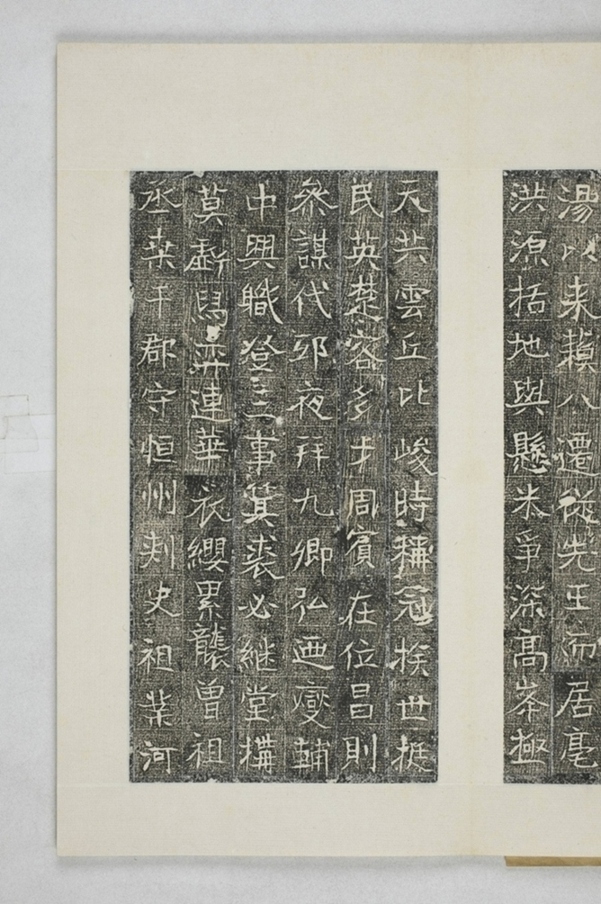 湯以来八遷從先王而居亳
洪源括地與懸米爭深高峯極
天共雲丘比峻時稱冠族世挺
民英楚客多才周賓在位昌則
叅謀代邸夜拜九卿弘迺變輔
中興職登三事箕裘必継堂構
莫虧舄弈連華衣纓累襲曾祖
丞桒干郡守恒州刾史祖業河